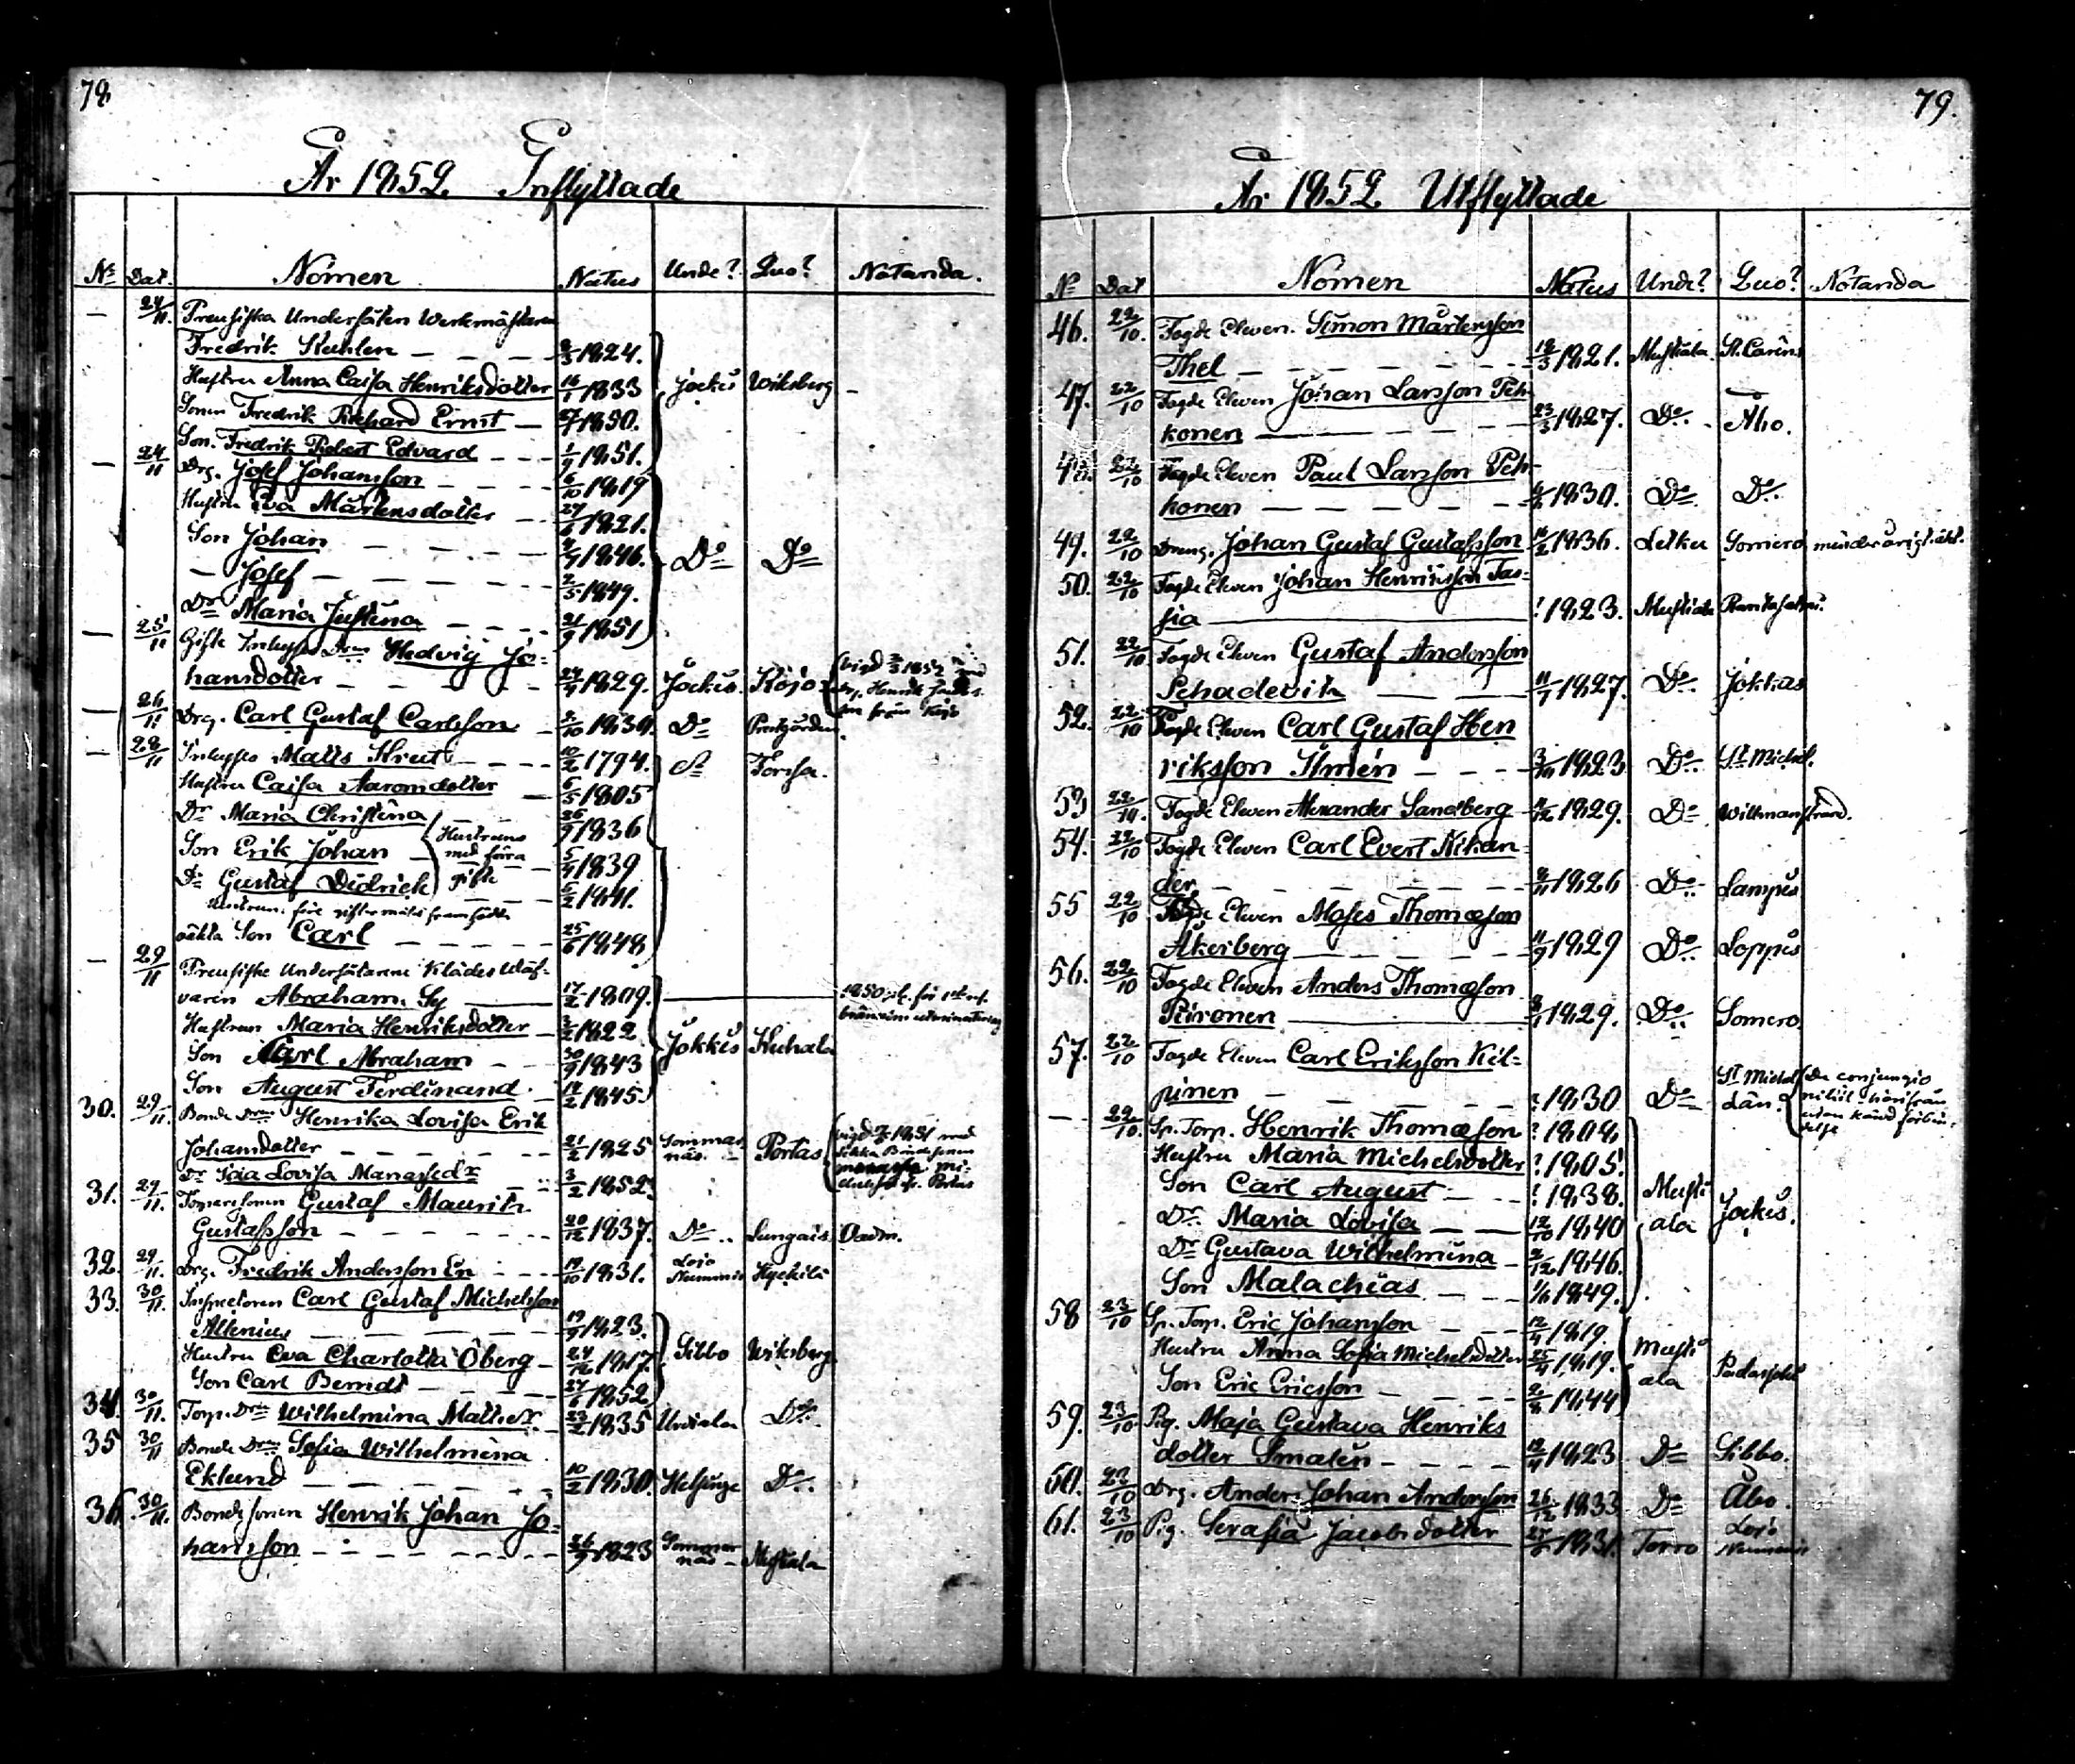 78
År 1852. Inflyttade
No Dat. Nomen Natus Unde? Quo? Notanda.
— 24/11. Preusiska Undersåten Werkmästaren
Fredrik Stuhlen — 1824.
Hustru Anna Caisa Henriksdotter 16/1 1833 Jockis Wiksberg —
Sonen Fredrik Richard Ernst — 1850.
Son. Fredrik Robert Edvard — 1/9 1851.
— 24/11 Drg. Josef Johansson — 6/10 1819
Hustru Eva Mårtensdotter — 1821.
Son Johan — 1846. Do Do
— Josef — 2/5 1849.
Dr Maria Justina — 21/9 1851
— 25/11 Gifte Inhyses Dren Hedvig Jo-
hansdotter — 24/4 1829. Jockis. Kojo
— 26/11 Drg. Carl Gustaf Carlsson — 2/10 1830. Do Prestgården.
— 28/11 Inhyses Matts Strut — 10/2 1794. Forssa.
Hustru Caisa Aaronsdotter — 6/5 1805
Dr Maria Christina — 26/9 1836
Son Erik Johan — Hustruns med förra gifte 5/4 1839
Do Gustaf Didrick 5/2 1841.
Hustruns före giftermålet framfödde
oäkta Son Carl — 25/6 1848
— 29/11 Preusiske Undersåtarene Klädes Wäf-
varen Abraham Sy — 17/2 1809.
Hustrun Maria Henriksdotter — 1822
Son Carl Abraham — 30/9 1843 Jokkis Kuhala
Son August Ferdinand. 1845
30. 29/11. Bonde Dren Henrika Lovisa Erik
Johansdotter — 21/2 1825 Sommarnäs. Portas
Dr Ida Lovisa Manassedr — 3/2 1852
31. 29/11. Torparesonen Gustaf Maurits
Gustafsson — 20/12 1837. Do Lungais.
32. 29/11. Drg. Fredrik Andersson En — 19/10 1831. Lojo Nummis
33. 30/11. Inspectoren Carl Gustaf Michelsson
Allenius — 19/9 1823.
Hustru Eva Charlotta Öberg — 24/12 1817. Sibbo Wiksberg
Son Carl Berndt — 27/6 1852
34. 30/11. Torp. Dren Wilhelmina Mattsdr. 23/2 1835 Urdiala Do.
35 30/11 Bonde Dren Sofia Wilhelmina
Eklund — 10/2 1830. Helsinge Do.
36. 30/11. Bonde sonen Henrik Johan Jo-
hansson — 1823 Sommarnäs — Mustiala
79.
År 1852 Utflyttade
No Dat Nomen Natus Unde? Quo? Notanda
46. 22/10. Fogde Eleven. Simon Mårtensson
Thel — 18/3 1821. Mustiala St. Carins
47. 22/10 Fogde Eleven Johan Larsson Peh-
konen — 23/3 1827. Do. Åbo.
48. 22/10 Fogde Eleven Paul Larsson Peh-
konen — 1830. Do. Do.
49. 22/10 Dreng. Johan Gustaf Gustafsson 1836. Letku Somero
50. 22/10 Fogde Eleven Johan Henriksson Tas-
sia — ! 1823. Mustiala Rantasalmi.
51. 22/10 Fogde Eleven Gustaf Andersson
Schadevik — 11/7 1827. Do. Jokkas
52. 22/10 Fogde Eleven Carl Gustaf Hen
riksson Ilmén — 1823 Do. St Michel.
53 22/10. Fogde Eleven Alexander Sandberg — 1829. Do Willmanstrand.
54. 22/10 Fogde Eleven Carl Evert Nikan-
der — 1826 Do. Lampis
55 22/10 Fogde Eleven Moses Thomæson
Åkerberg — 11/9 1829 Do. Loppis
56. 22/10 Fogde Eleven Anders Thomæson
Piironen — 1829. Do. Somero.
57. 22/10 Fogde Eleven Carl Eriksson Kil-
pinen — ? 1830 Do St Michel Län. De conjungio nihil härifrån
— 22/10. Sp. Torp. Henrik Thomæson ? 1808
Hustru Maria Michelsdotter ? 1805.
Son Carl August — ? 1838.
Dr. Maria Lovisa — 12/10 1840 Mustiala Jockis.
Dr Gustava Wilhelmina — 2/12 1846.
Son Malachias — 1849.
58 23/10 Sp. Torp. Eric Johansson — 12/4 1819.
Hustru Anna Sofia Michelsdotter 25/4 1819. Mustiala Padasjoki
Son Eric Ericsson — 1844
59. 23/10 Pig. Maja Gustava Henriks
dotter Smalén — 1823 Do Sibbo.
60. 23/10 Drg. Anders Johan Andersson 26/12 1833 Do Åbo.
61. 23/10 Pig. Serafia Jacobsdotter 1831. Torro Lojo Nummis